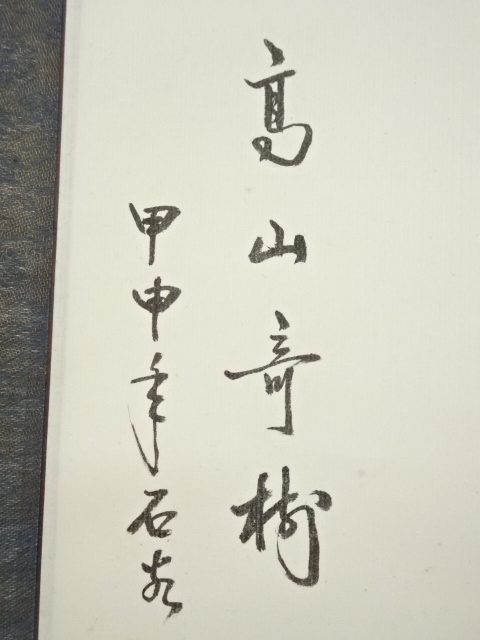 高山奇樹
甲申年石